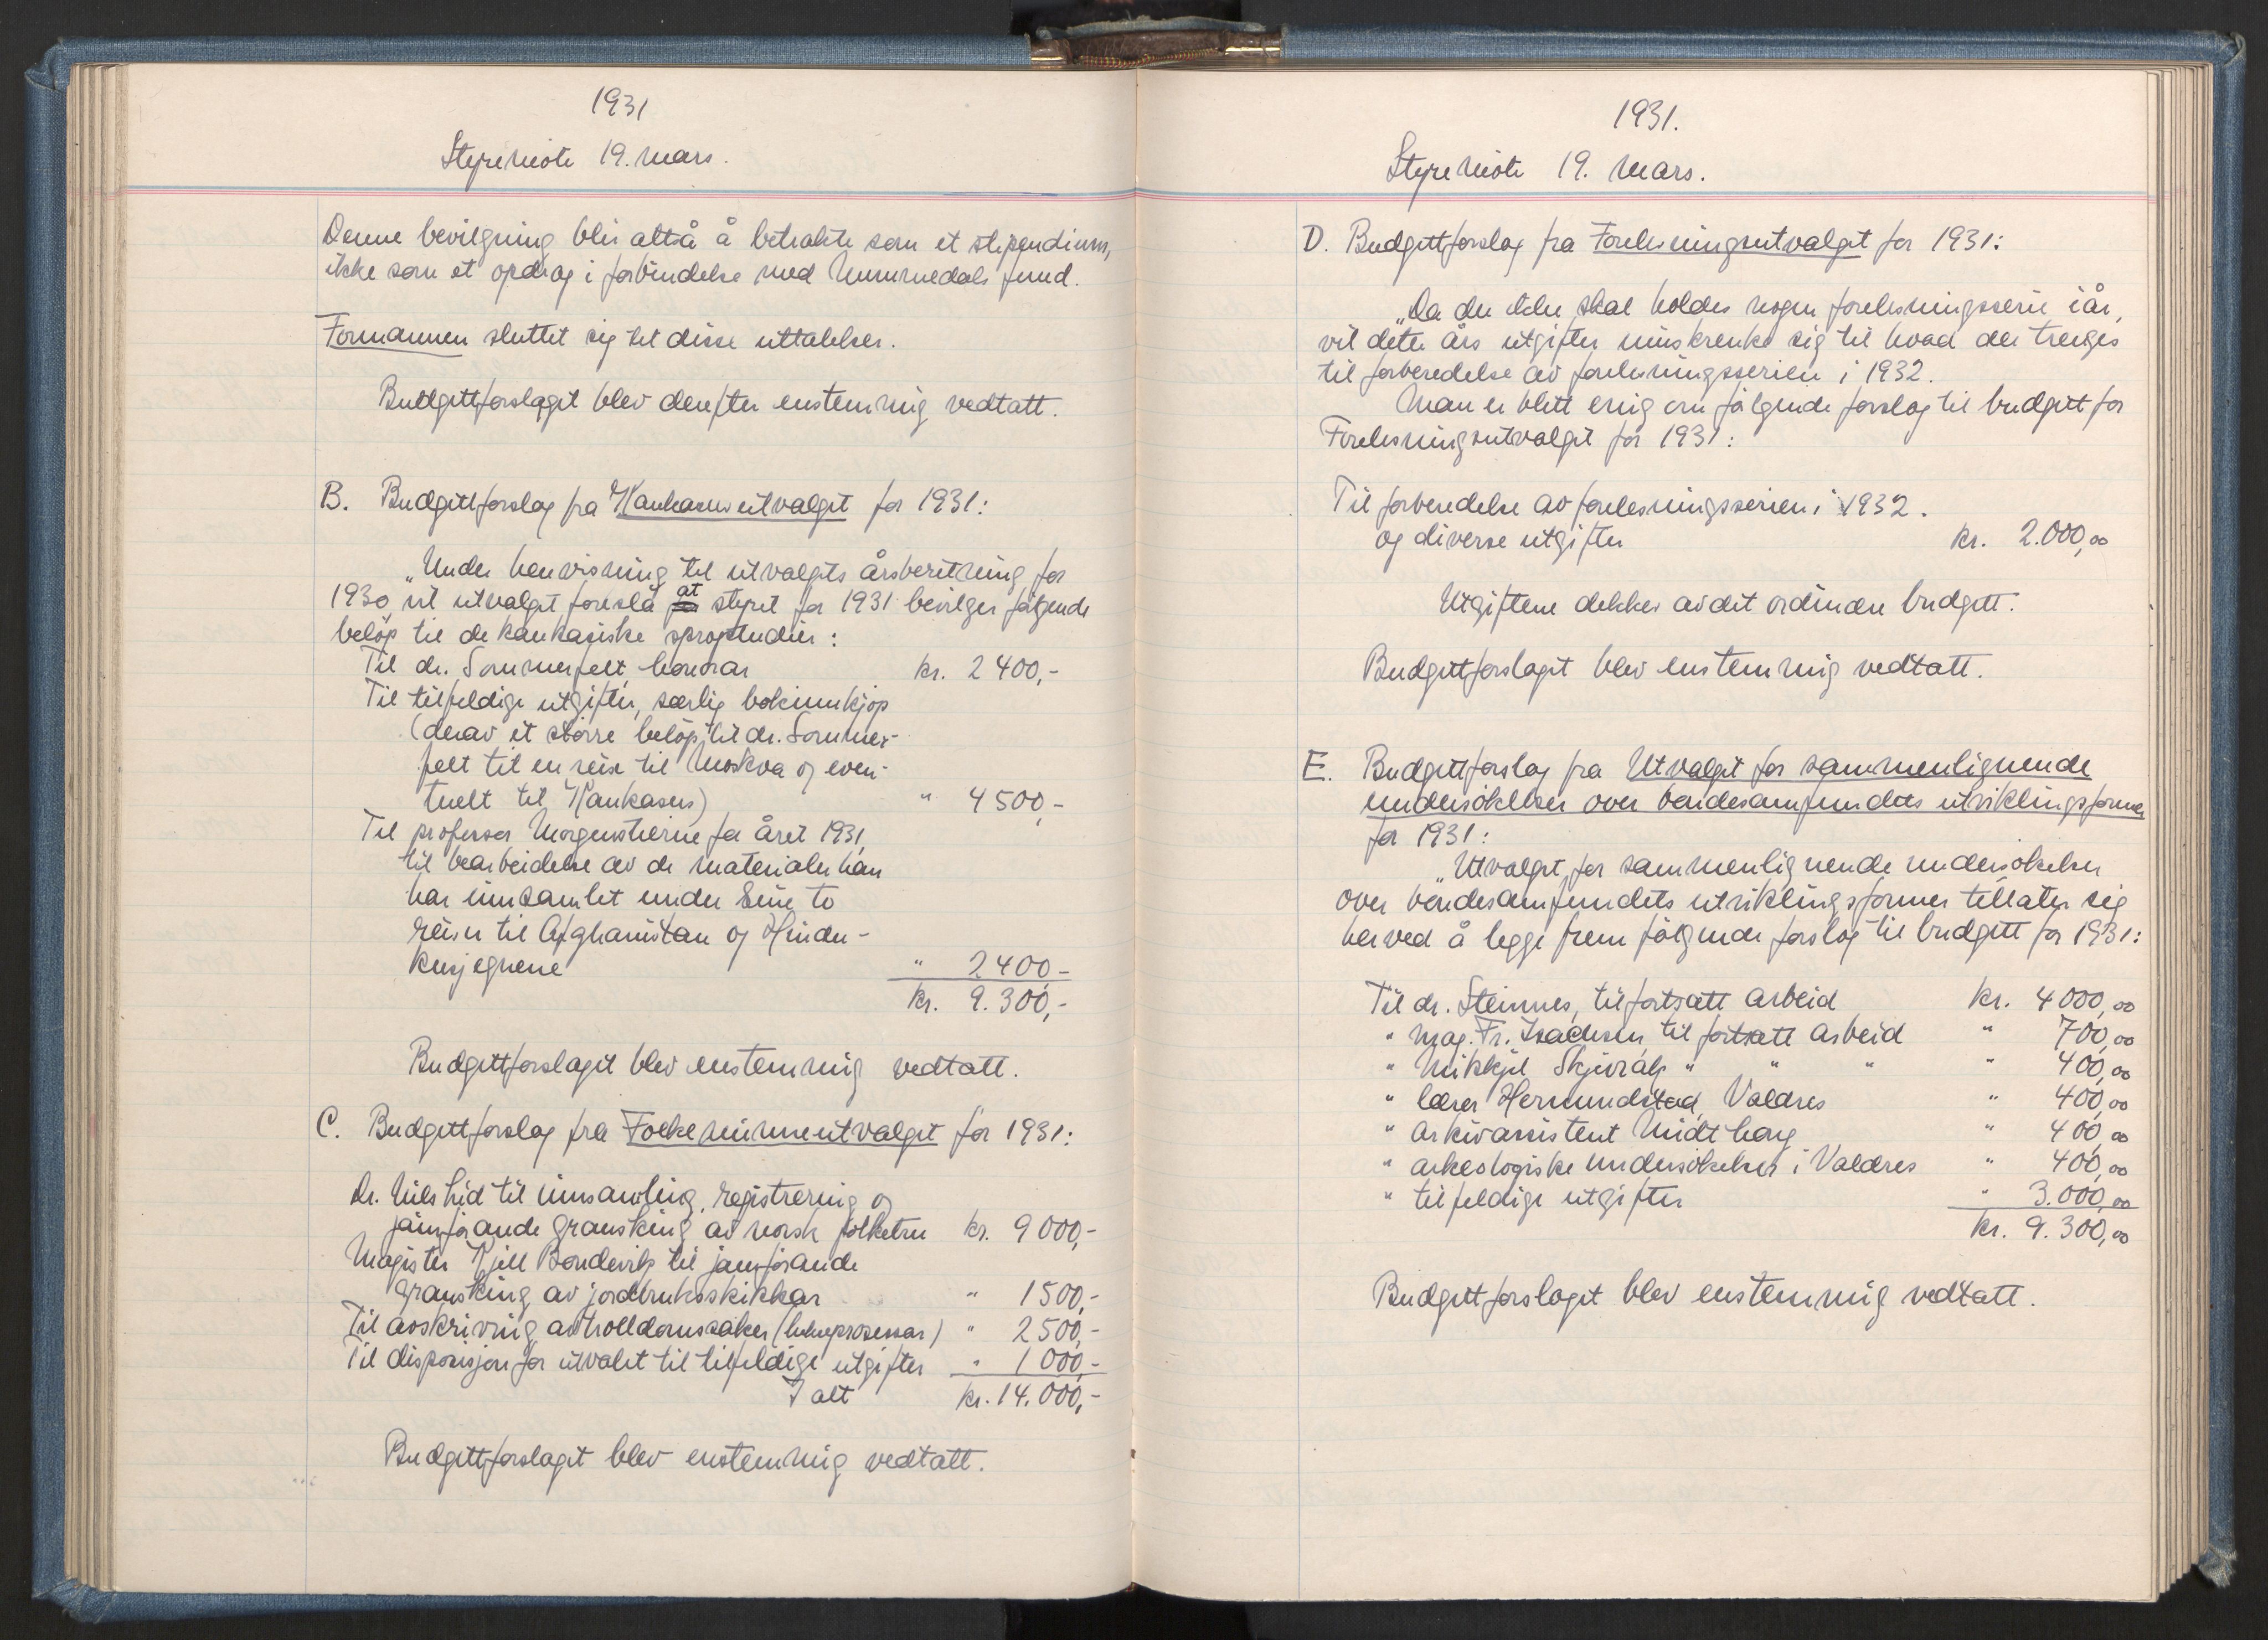 1931
Styremöte 19. mars.
Denne bevilgning blir altså å betrakte som et stipendium,
ikke som et opdrag i forbindelse med Nummedals fund.
Formannen sluttet sig til disse uttalelser.
Budgettforslaget blev derefter enstemmig vedtatt.
B. Budgettforslag fra Kaukasusutvalget for 1931:
„Under henvisning til utvalgets årsberetning for
1930 vil utvalget foreslå at styret for 1931 bevilger fölgende
belöp til de kaukasiske sprogstudier:
Til dr. Sommerfelt, honorar kr. 2 400,-
Til tilfeldige utgifter, særlig bokinnkjöp
(derav et större belöp til dr. Sommer-
felt til en reise til Moskva og even-
tuelt til Kaukasus) " 4 500,-
Til professor Morgenstierne for året 1931,
til bearbeidelse av de materialer han
har innsamlet under sine to
reiser til Afghanistan og Hindu-
kusjegnene " 2 400,-
kr. 9.300,-
Budgettforslaget blev enstemmig vedtatt.
C. Budgettforslag fra Folkeminneutvalget for 1931:
Dr. Nils Lid til innsamling, registrering og
jämförande gransking av norsk folketru kr. 9 000,-
Magister Kjell Bondevik til jamförande
gransking av jordbruksskikkar " 1 500,-
Til avskriving av trolldomssaker (hekseprosessar) " 2 500,-
Til disposisjon for utvalet til tilfeldige utgifter " 1 000,-
I alt kr. 14.000,-
Budgettforslaget blev enstemmig vedtatt.
1931.
Styremöte 19. mars.
D. Budgettforslag fra Forelesningsutvalget for 1931:
„Da der ikke skal holdes nogen forelesningsserie iår,
vil dette års utgifter innskrenke sig til hvad der trenges
til forberedelse av forelesningsserien i 1932.
Man er blitt enig om fölgende forslag til budgett for
Forelesningsutvalget for 1931:
Til forberedelse av forelesningsserien i 1932.
og diverse utgifter kr. 2.000,00
Utgiftene dekkes av det ordinære budgett.
Budgettforslaget blev enstemmig vedtatt.
E. Budgettforslag fra Utvalget for sammenlignende
undersökelser over bondesamfundets utviklingsformer
for 1931:
„Utvalget for sammenlignende undersökelser
over bondesamfundets utviklingsformer tillater sig
herved å legge frem fölgende forslag til budgett for 1931:
Til dr. Steinnes, til fortsatt arbeid kr. 4 000,00
" mag. Fr. Isachsen, til fortsatt arbeid " 700,00
" Mikkjel Skjeiråk " " " " 400,00
" lærer Hermundstad, Valdres " 400,00
" arkivassistent Midthaug " 400,00
" arkeologiske undersökelser i Valdres " 400,00
" tilfeldige utgifter " 3.000,00
kr. 9.300,00
Budgettforslaget blev enstemmig vedtatt.